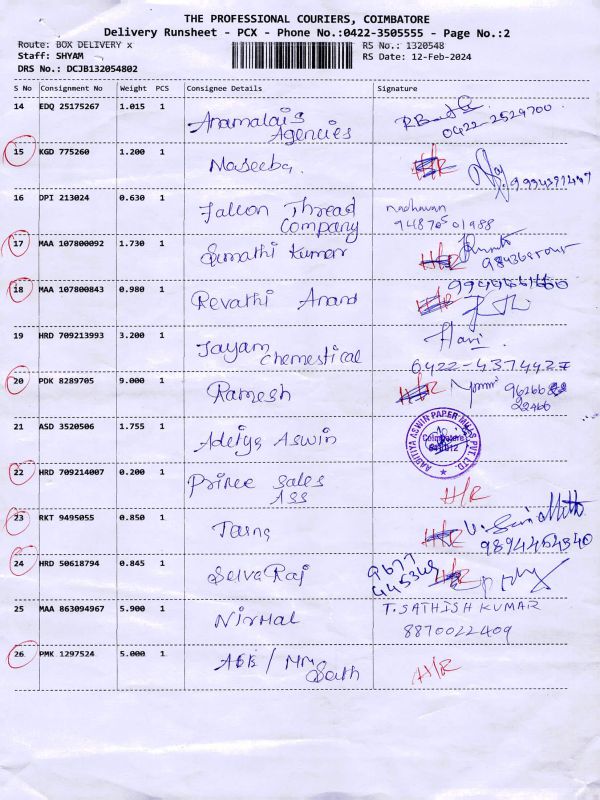 THE PROFESSIONAL COURIERS, COIMBATORE
Delivery Runsheet - PCX - Phone No.:0422-3505555 - Page No.:2
Route: BOX DELIVERY x RS No.: 1320548
Staff: SHYAM RS Date: 12-Feb-2024
DRS No.: DCJB132054802
S No Consignment No Weight PCS Consignee Details Signature
14 EDQ 25175267 1.015 1 Anamalais
Agencies
0422-2529700
15 KGD 775260 1.200 1 Maseeba. H/R
16 DPI 213024 0.630 1 Falcon Thread
Company
17 MAA 107800092 1.730 1 Sumathi Kumar H/R
18 MAA 107800843 0.980 1 Revathi Anand H/R
19 HRD 709213993 3.200 1 Jayam Hari
chemestical 0422-4374427
20 PDK 8289705 9.000 1 Ramesh H/R
21 ASD 3520506 1.755 1 Aditya Aswin
AADITIYA ASWIN PAPER MILLS PVT. LTD.
Coimbatore
641012
22 HRD 709214007 0.200 1 Prince Sales
Ass H/R
23 RKT 9495055 0.850 1 H/R
9894454340
24 HRD 50618794 0.845 1 SelvaRaj H/R
9677
445349
25 MAA 863094967 5.900 1 Nirmal T. SATHISH KUMAR
8870022409
26 PMK 1297524 5.000 1 H/R